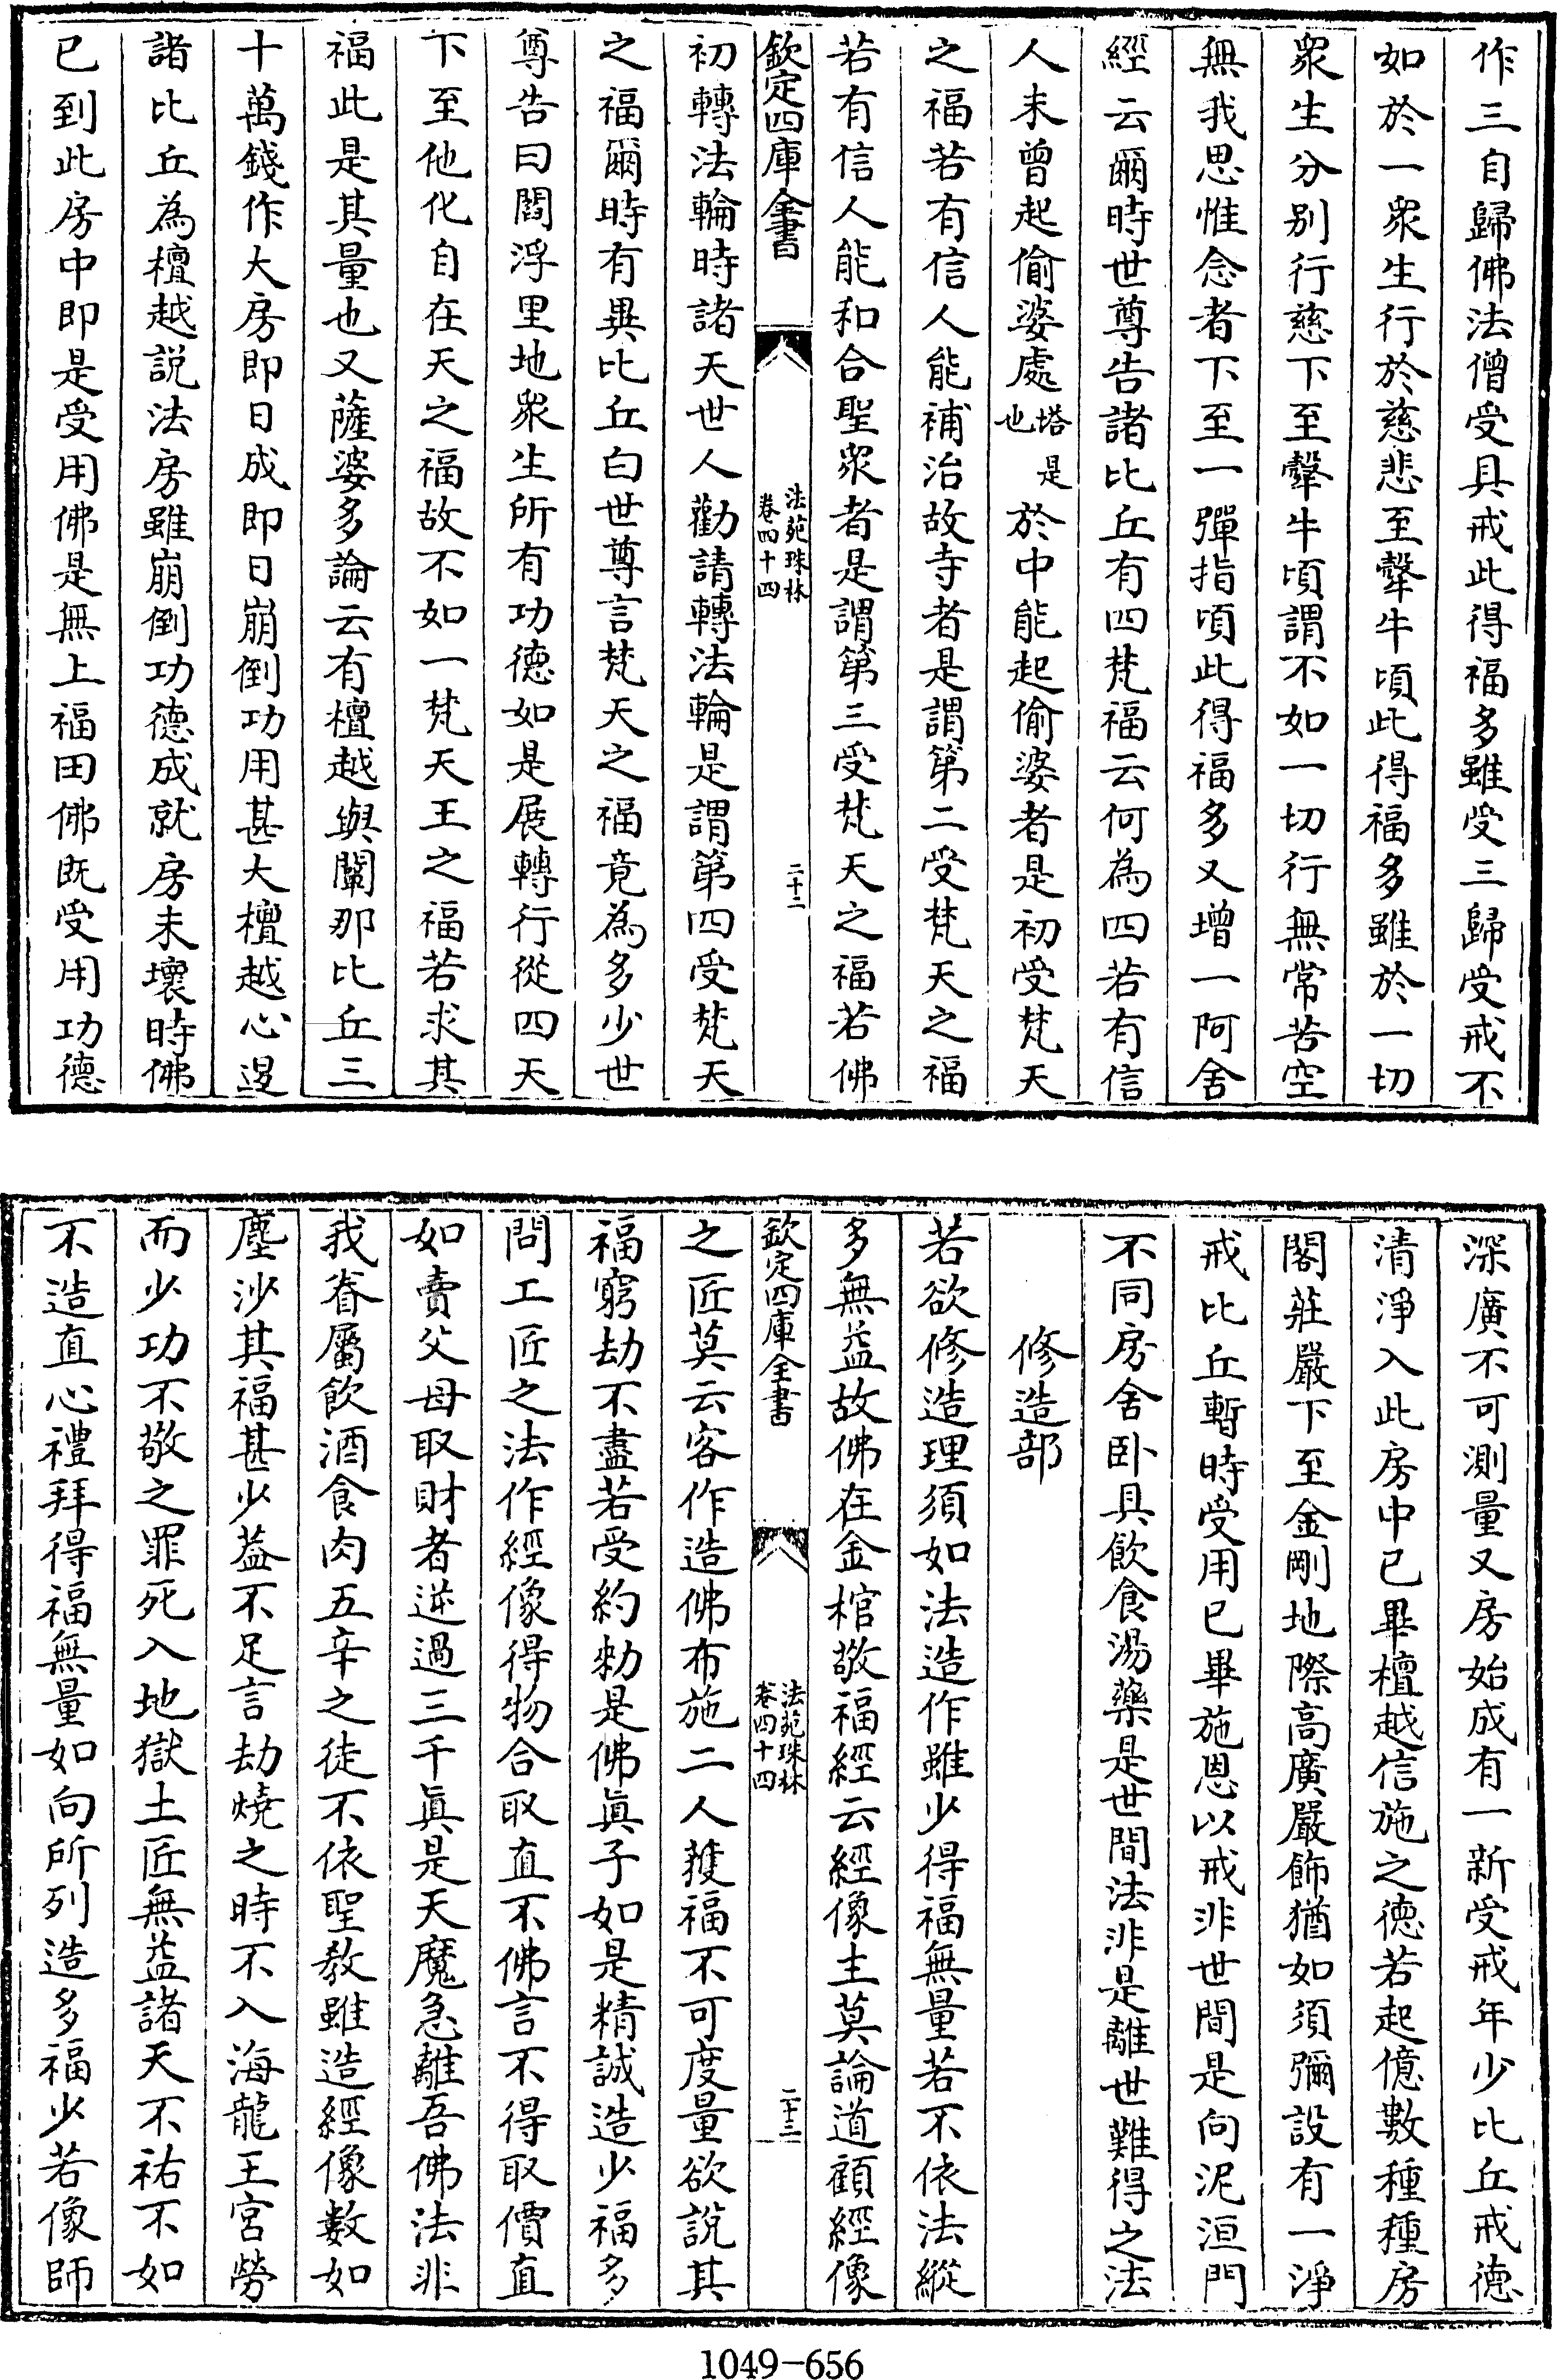 作三自歸佛法僧受具戒此得福多雖受三歸受戒不
如於一衆生行於慈悲至𤛓牛頃此得福多雖於一切
衆生分别行慈下至𤛓牛頃謂不如一切行無常苦空
無我思惟念者下至一彈指頃此得福多又增一阿舍
經云爾時世尊告諸比丘有四梵福云何為四若有信
人未曾起偷婆處塔是也於中能起偷婆者是初受梵天
之福若有信人能補治故寺者是謂第二受梵天之福
若有信人能和合聖衆者是謂第三受梵天之福若佛
欽定四庫全書 法苑珠林卷四十四 二十二
初轉法輪時諸天世人勸請轉法輪是謂第四受梵天
之福爾時有異比丘白世尊言梵天之福竟為多少世
尊告曰閻浮里地衆生所有功德如是展轉行從四天
下至他化自在天之福故不如一梵天王之福若求其
福此是其量也又薩婆多論云有檀越與闡那比丘三
十萬錢作大房即日成即日崩倒功用甚大檀越心退
諸比丘為檀越説法房雖崩倒功德成就房未壞時佛
已到此房中即是受用佛是無上福田佛既受用功德
深廣不可測量又房始成有一新受戒年少比丘戒德
清淨入此房中已畢檀越信施之德若起億數種種房
閣莊嚴下至金剛地際高廣嚴飾猶如須彌設有一淨
戒比丘暫時受用已畢施恩以戒非世間是向泥洹門
不同房舍卧具飲食湯藥是世間法非是離世難得之法
修造部
若欲修造理須如法造作雖少得福無量若不依法縱
多無益故佛在金棺敬福經云經像主莫論道顧經像
欽定四庫全書 法苑珠林卷四十四 二十三
之匠莫云客作造佛布施二人獲福不可度量欲説其
福窮劫不盡若受約勑是佛眞子如是精誠造少福多
問工匠之法作經像得物合取直不佛言不得取價直
如賣父母取財者逆過三千眞是天魔急離吾佛法非
我眷屬飲酒食肉五辛之徒不依聖教雖造經像數如
塵沙其福甚少葢不足言劫燒之時不入海龍王宮勞
而少功不敬之罪死入地獄土匠無益諸天不祐不如
不造直心禮拜得福無量如向所列造多福少若像師
1049-656